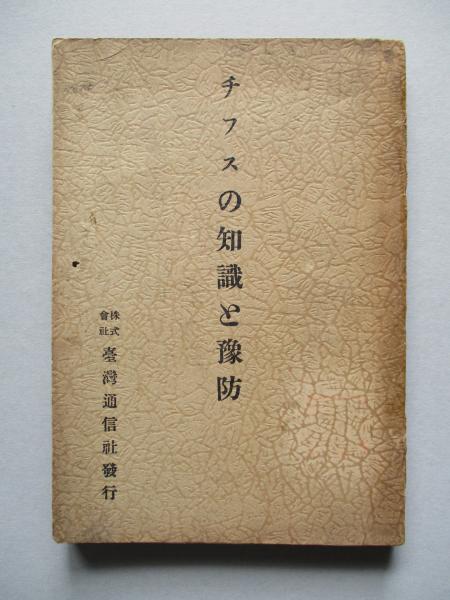 チフスの知識と豫防
株式會社臺灣通信社發行